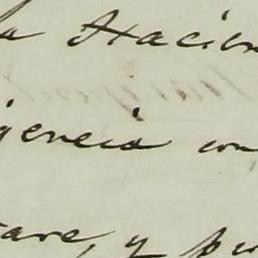 a Hacien
igencia con
are, y pu